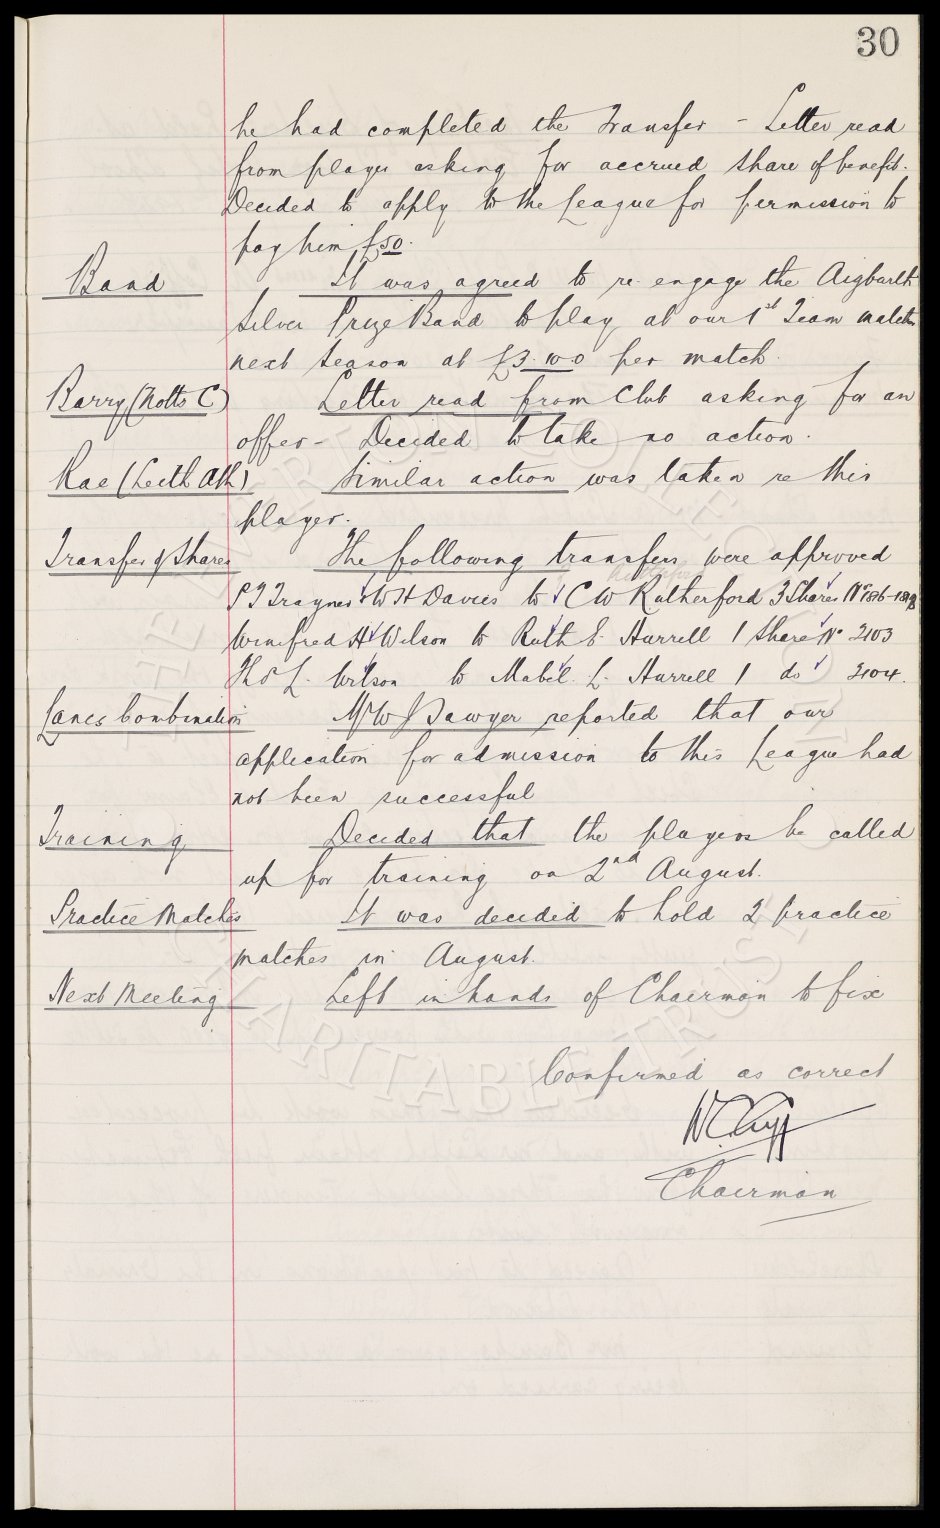 30
he had completed the Transfer - Letter read
from player asking for accrued share of benefit.
Decided to apply to the League for permission to
pay him £50.
Band It was agreed to re-engage the Aigburth
Silver Prize Band to play at our 1st Team matches
next season at £3.10.0 per match.
Barry (Notts C) Letter read from Club asking for an
offer - Decided to take no action.
Rae (Leith Ath) Similar action was taken re this
player.
Transfer of Shares The following transfers were approved
P J Traynor & W H Davies to C W Rutherford 3 Shares Nos 186-188
Winifred H Wilson to Ruth E. Hurrell 1 Share No 2103
Thos L. Wilson to Mabel L. Hurrell 1 do 2104.
Lancs Combination Mr W J Sawyer reported that our
application for admission to this League had
not been successful
Training Decided that the players be called
up for training on 2nd August.
Practice Matches It was decided to hold 2 Practice
matches in August.
Next Meeting Left in hands of Chairman to fix
Confirmed as correct
Chairman
THE EVERTON COLLECTION
CHARITABLE TRUST